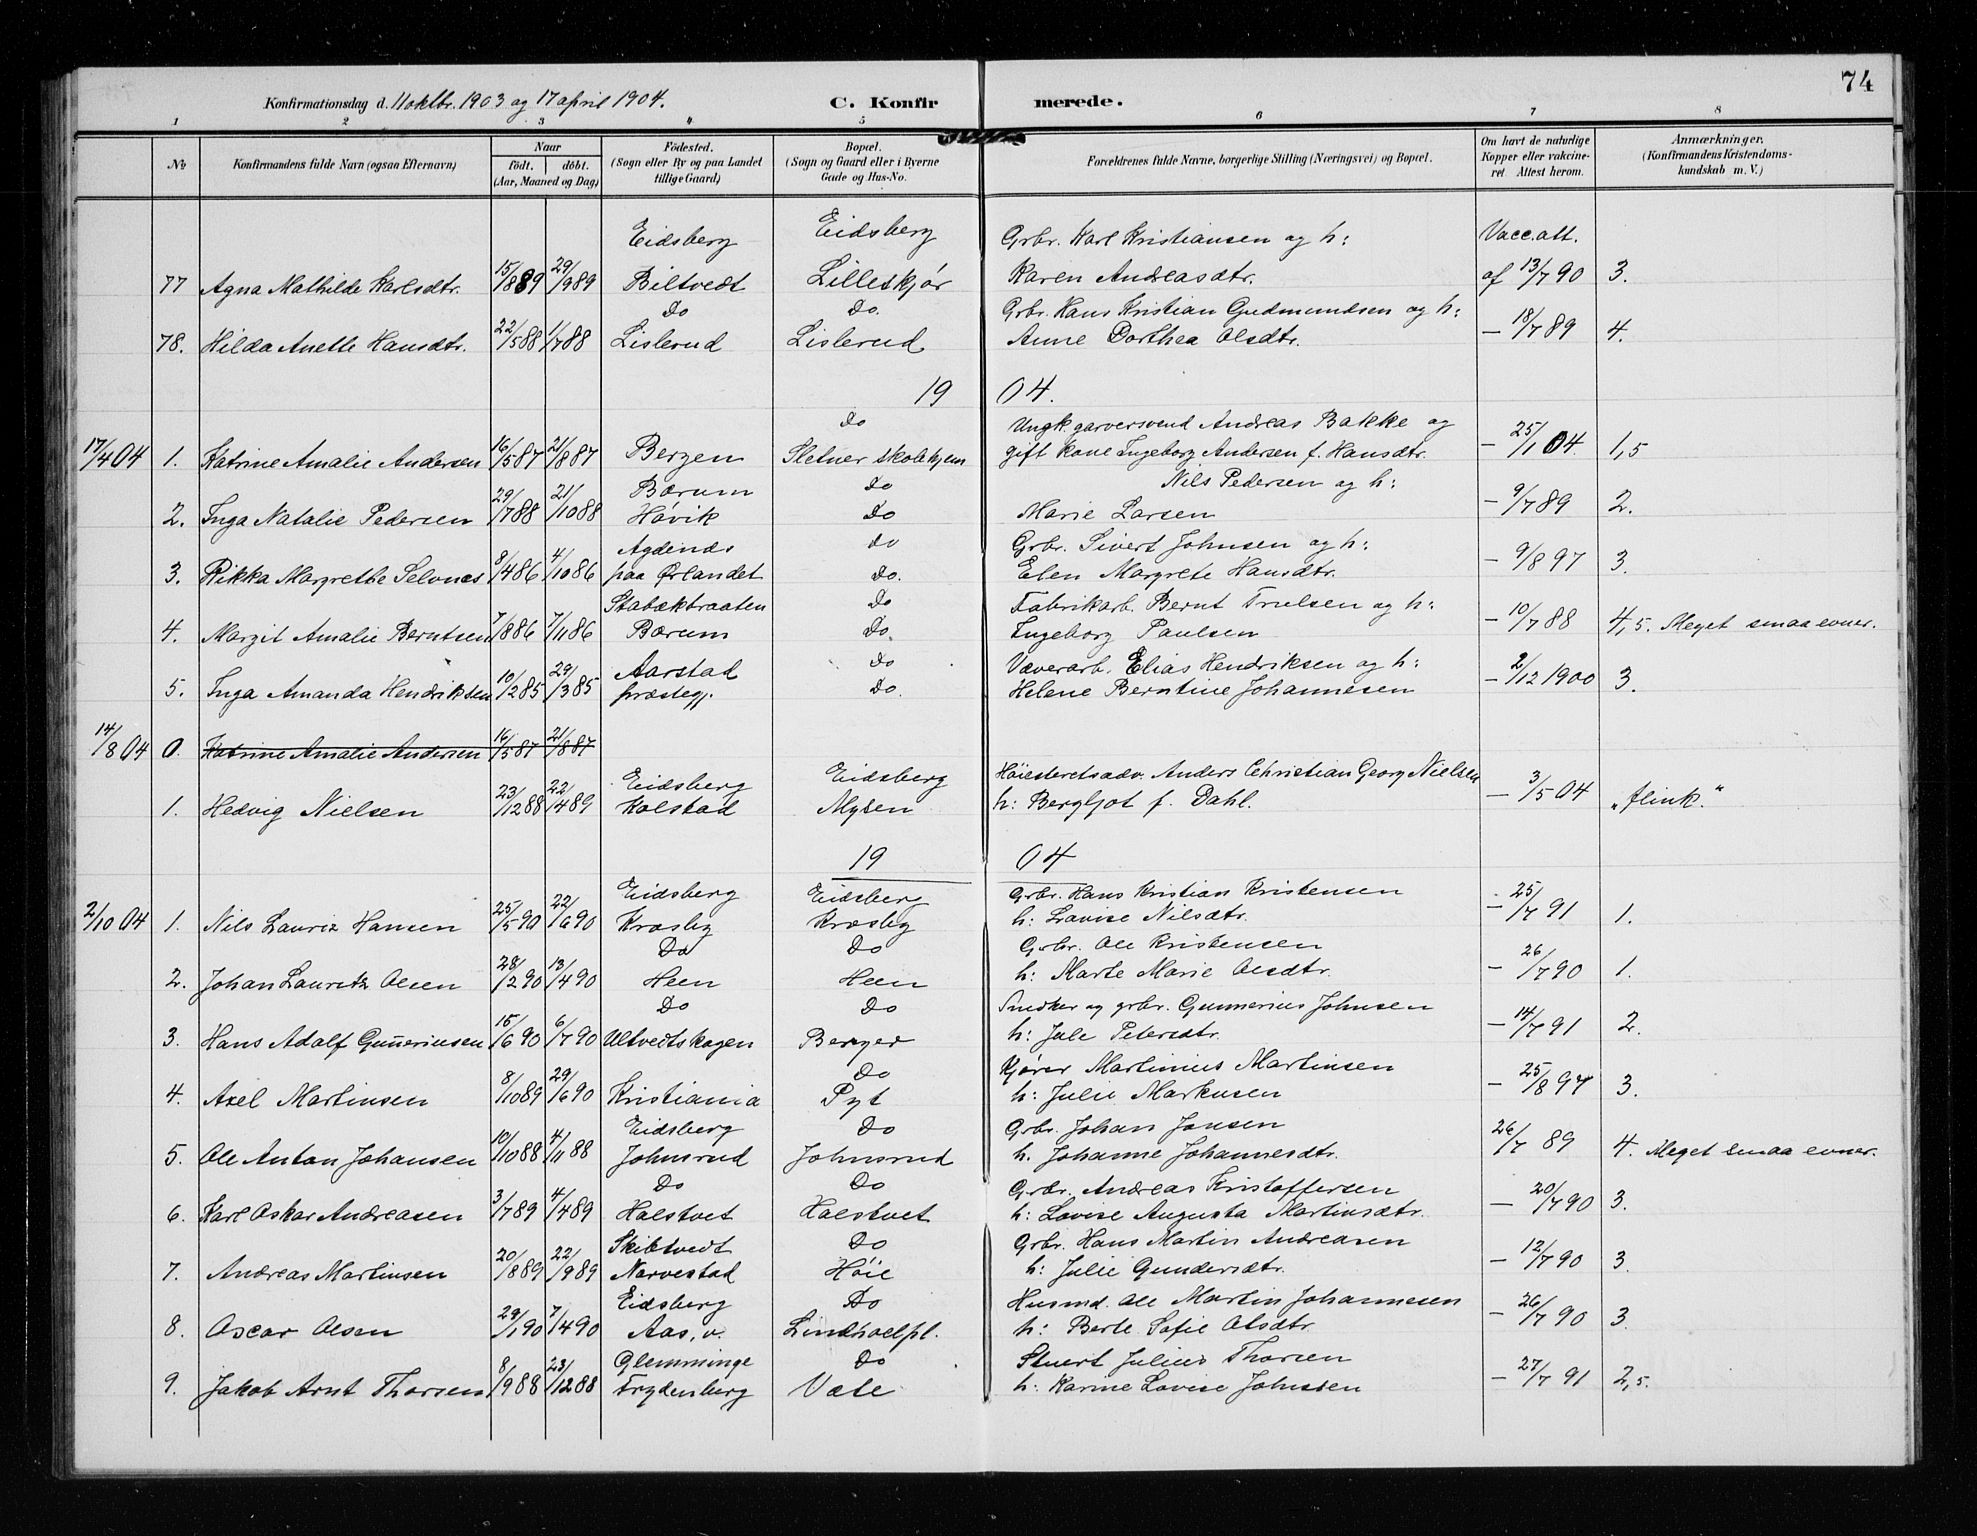 74
Konfirmationsdag d. 11 oktbr. 1903 og 17 april 1904.
C. Konfirmerede.
1 2 3 4 5 6 7 8
No Konfirmandens fulde Navn (ogsaa Efternavn) Naar født. døbt. (Aar, Maaned og Dag) Fødested. (Sogn eller By og paa Landet tillige Gaard) Bopæl. (Sogn og Gaard eller i Byerne Gade og Hus-No. Forældrenes fulde Navne, borgerlige Stilling (Næringsvei) og Bopæl. Om havt de naturlige Kopper eller vakcineret Attest herom. Anmærkninger. (Konfirmandens Kristendomskundskab m. V.)
Eidsberg Eidsberg Grbr. Karl Kristiansen og h: Vacc.att.
77 Agna Mathilde Karlsdtr. 15/8 89 29/9 89 Biltvedt Lilleskjør Karen Andreasdtr. af 13/7 90 3.
Do Do. Grbr. Hans Kristian Gudmundsen og h:
78. Hilda Anette Hansdtr. 22/5 88 1/7 88 Lislerud Lislerud Anne Dorthea Olsdtr. – 18/7 89 4.
19 04.
Do Ungk. garversvend Andreas Bakke og
17/4 04 1. Katrine Amalie Andersen 16/5 87 21/8 87 Bergen Sletner skolehjem gift kone Ingeborg Andersen f. Hansdtr. – 25/1 04. 1,5
Bærum Do Nils Pedersen og h:
2. Inga Natalie Pedersen 29/7 88 21/10 88 Høvik Do Marie Larsen – 9/7 89 2.
Agdenæs Do Grbr. Sivert Johnsen og h:
3. Rikka Margrethe Selvnæs 8/4 86 4/10 86 paa Ørlandet Do. Elen Margrete Hansdtr. – 9/8 97 3.
Stabækbraaten Do Fabrikarb. Bernt Truelsen og h:
4. Margit Amalie Berntsen 7/8 86 7/11 86 Bærum Do. Ingeborg Paulsen – 10/7 88 4,5. Meget smaa evner.
Aarstad Do Væverarb. Elias Hendriksen og h:
5. Inga Amanda Hendriksen 10/12 85 29/3 85 præstegj. Do. Helene Berntine Johannesen – 2/12 1900 3.
14/8 04 0. Katrine Amalie Andersen 16/5 87 21/8 87
Eidsberg Eidsberg Høiesteretsadv. Anders Christian Georg Nielsen
1. Hedvig Nielsen 23/12 88 22/4 89 Kolstad Mysen h: Bergljot f. Dahl. – 3/5 04 „flink.“
19 04
Eidsberg Eidsberg Grbr. Hans Kristian Kristensen
2/10 04 1. Nils Lauriz Hansen 25/5 90 22/6 90 Kræsby Kræsby h: Lovise Nilsdtr. – 25/7 91 1.
Do Do Grbr. Ole Kristensen
2. Johan Lauritz Olsen 28/2 90 13/4 90 Heen Heen h: Marte Marie Olsdtr. – 26/7 90 1.
Do Do Snedker og grbr. Gunnerius Johnsen
3. Hans Adolf Gunneriusen 15/6 90 6/7 90 Ultvedtskogen Berger h: Jule Petersdtr. – 14/7 91 2.
Do Kjører Martinius Martinsen
4. Axel Martinsen 8/10 89 29/6 90 Kristiania Pyt h: Julie Markusen – 25/8 97 3.
Eidsberg Do Grbr. Johan Jonsen
5. Ole Anton Johansen 10/10 88 4/11 88 Johnsrud Johnsrud h. Johanne Johannesdtr. 26/7 89 4. Meget smaa evner.
Do Do Grbr. Andreas Kristoffersen
6. Karl Oskar Andreasen 3/7 89 4/4 89 Halstvet Halstvet h: Lovise Augusta Martinsdtr. – 20/7 90 3.
Skibtvedt Do Grbr. Hans Martin Andreasen
7. Andreas Martinsen 20/8 89 22/9 89 Narvestad Høie h: Julie Gundersdtr. – 12/7 90 3.
Eidsberg Do Husmd. Ole Martin Johannesen
8. Oscar Olsen 29/1 90 7/4 90 Aas, v. Lindhoelpl. h: Berte Sofie Olsdtr. – 26/7 90 3.
Glemminge Do Stuert Julius Thorsen
9. Jakob Arnt Thorsen 8/9 88 23/12 88 Frydenberg Vale h: Karine Lovise Johnsen – 27/7 91 2,5.